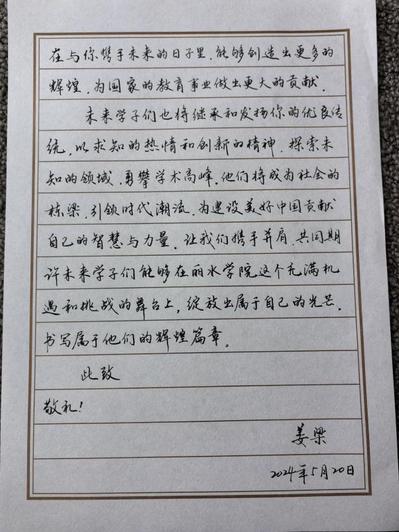 在与你携手未来的日子里,能够创造出更多的
辉煌,为国家的教育事业做出更大的贡献.
未来学子们也将继承和发扬你的优良传
统,以求知的热情和创新的精神,探索未
知的领域,勇攀学术高峰.他们将成为社会的
栋梁,引领时代潮流,为建设美好中国贡献
自己的智慧与力量.让我们携手并肩,共同期
许未来学子们能够在丽水学院这个充满机
遇和挑战的舞台上,绽放出属于自己的光芒.
书写属于他们的辉煌篇章。
此致
敬礼!
姜梁
2024年5月20日